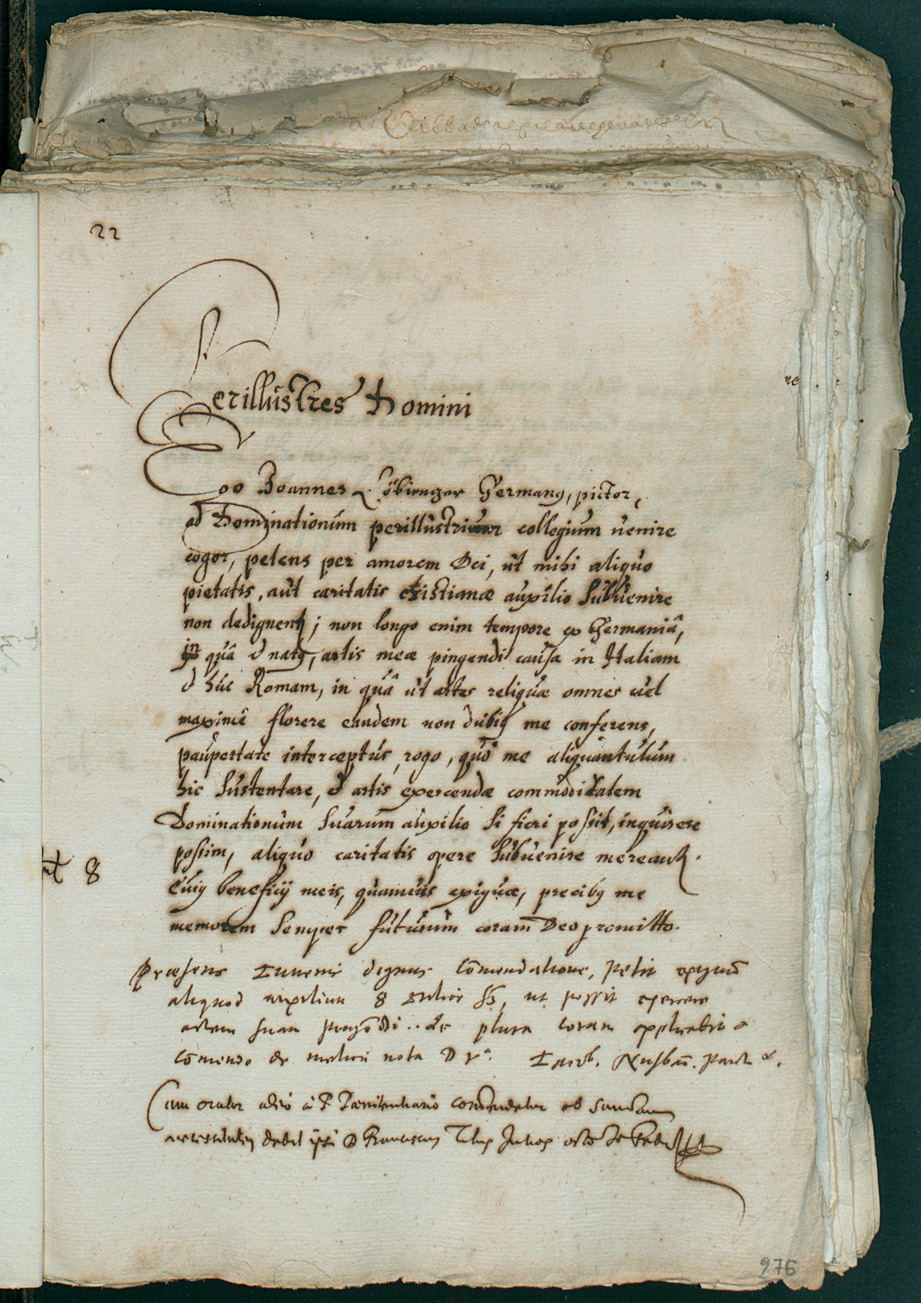 22
Perillustres Domini
Ego Joannes Germanus, pictor,
ad Dominationum perillustrium collegium uenire
cogor, petens per amorem Dei, ut mihi aliquo
pietatis, aut caritatis christianæ auxilio subuenire
non dedignentur; non longo enim tempore ex Germaniâ,
in quâ natus, artis meæ pingendi causa in Italiam
& huc Romam, in quâ ut artes reliquæ omnes uel
maximè florere eandem non dubius me conferens,
paupertate interceptus, rogo, quò me aliquantulum
hic sustentare, & artis exercendæ commoditatem
Dominationum suarum auxilio si fieri possit, inquirere
possim, aliquo caritatis opere subuenire mereantur.
Cuius beneficij meis, quamuis exiguæ, precibus me
memorem semper futurum coram Deo promitto.
8
Præsens Iuuenis dignus comendatione, petit
aliquod auxilium 8 ut possit exercere
artem suam plura coram
comendo D V.ª Iacob.
Cum orator adeò à P. Pœnitentiario comendetur ob summam
necessitatem D Franciscus octo
276